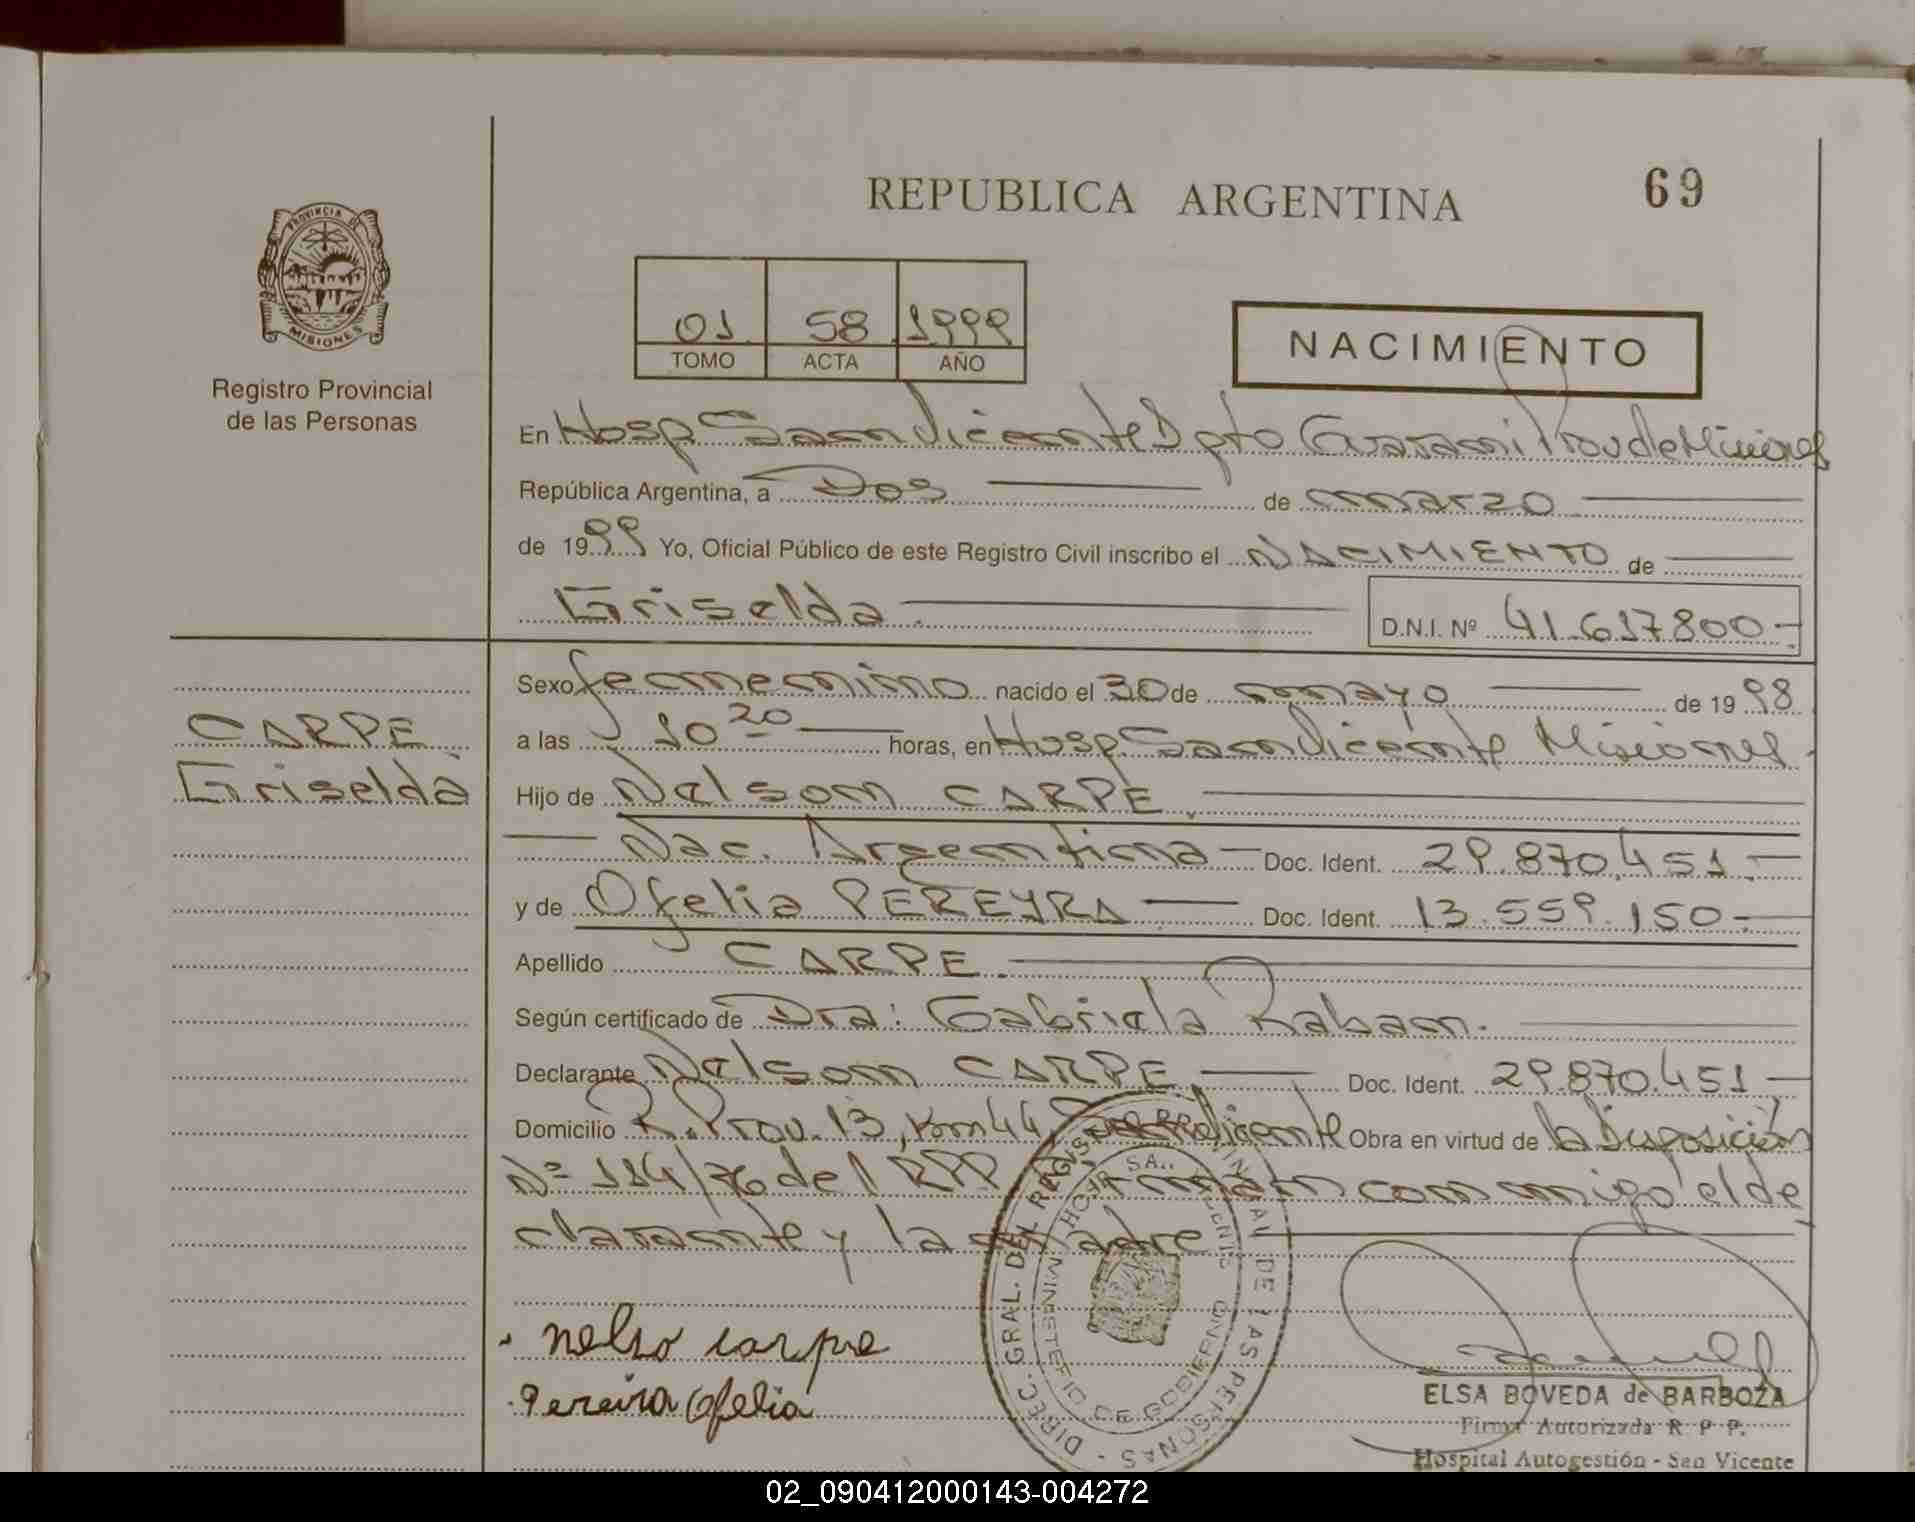 REPUBLICA ARGENTINA
69
PROVINCIA DE
MISIONES
Registro Provincial
de las Personas
01 58 1999
TOMO ACTA AÑO
NACIMIENTO
En Hosp San Vicente Dpto Guarani Prov de Misiones
República Argentina, a Dos de marzo
de 1999 Yo, Oficial Público de este Registro Civil inscribo el NACIMIENTO de
Griselda D.N.I. Nº 41.617800
CARPE
Griselda
Sexo femenino nacido el 30 de mayo de 1998
a las 10 20 horas, en Hosp. San Vicente Misiones
Hijo de Nelson CARPE
Nac. Argentina Doc. Ident. 29.870.451
y de Ofelia PEREYRA Doc. Ident. 13.559.150
Apellido CARPE
Según certificado de Dra: Gabriela Raban.
Declarante Nelson CARPE Doc. Ident. 29.870.451
Domicilio R. Prov. 13, Km 44 San Vicente Obra en virtud de la Disposición
Nº 114/76 del RPP Firman conmigo el de
clarante y la Madre
nelso carpe
Pereira Ofelia
DIREC. GRAL. DEL REG. PROVINCIAL DE LAS PERSONAS
MINISTERIO DE GOBIERNO
ELSA BOVEDA de BARBOZA
Firma Autorizada R. P. P.
Hospital Autogestión - San Vicente
02_090412000143-004272